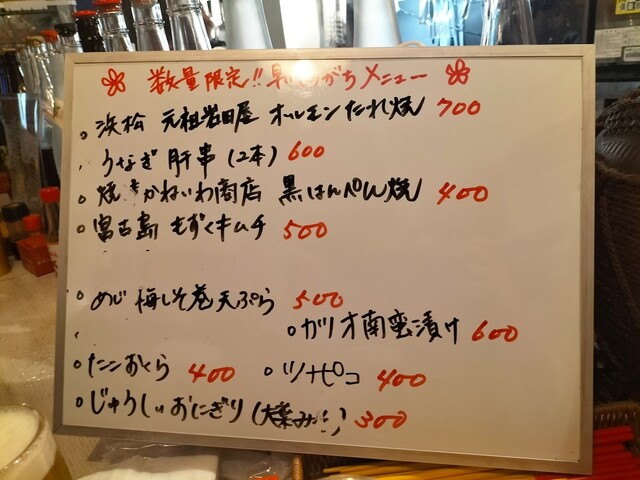 数量限定!! 早いもんがちメニュー
浜松 元祖岩田屋 ホルモンたれ焼 700
うなぎ 肝串 (2本) 600
焼 かねいわ商店 黒はんぺん焼 400
宮古島 もずくキムチ 500
めじ 梅しそ巻天ぷら 500
ガツオ南蛮漬け 600
たたきおくら 400
ツナピコ 400
じゅうしぃおにぎり (大葉みそ) 300